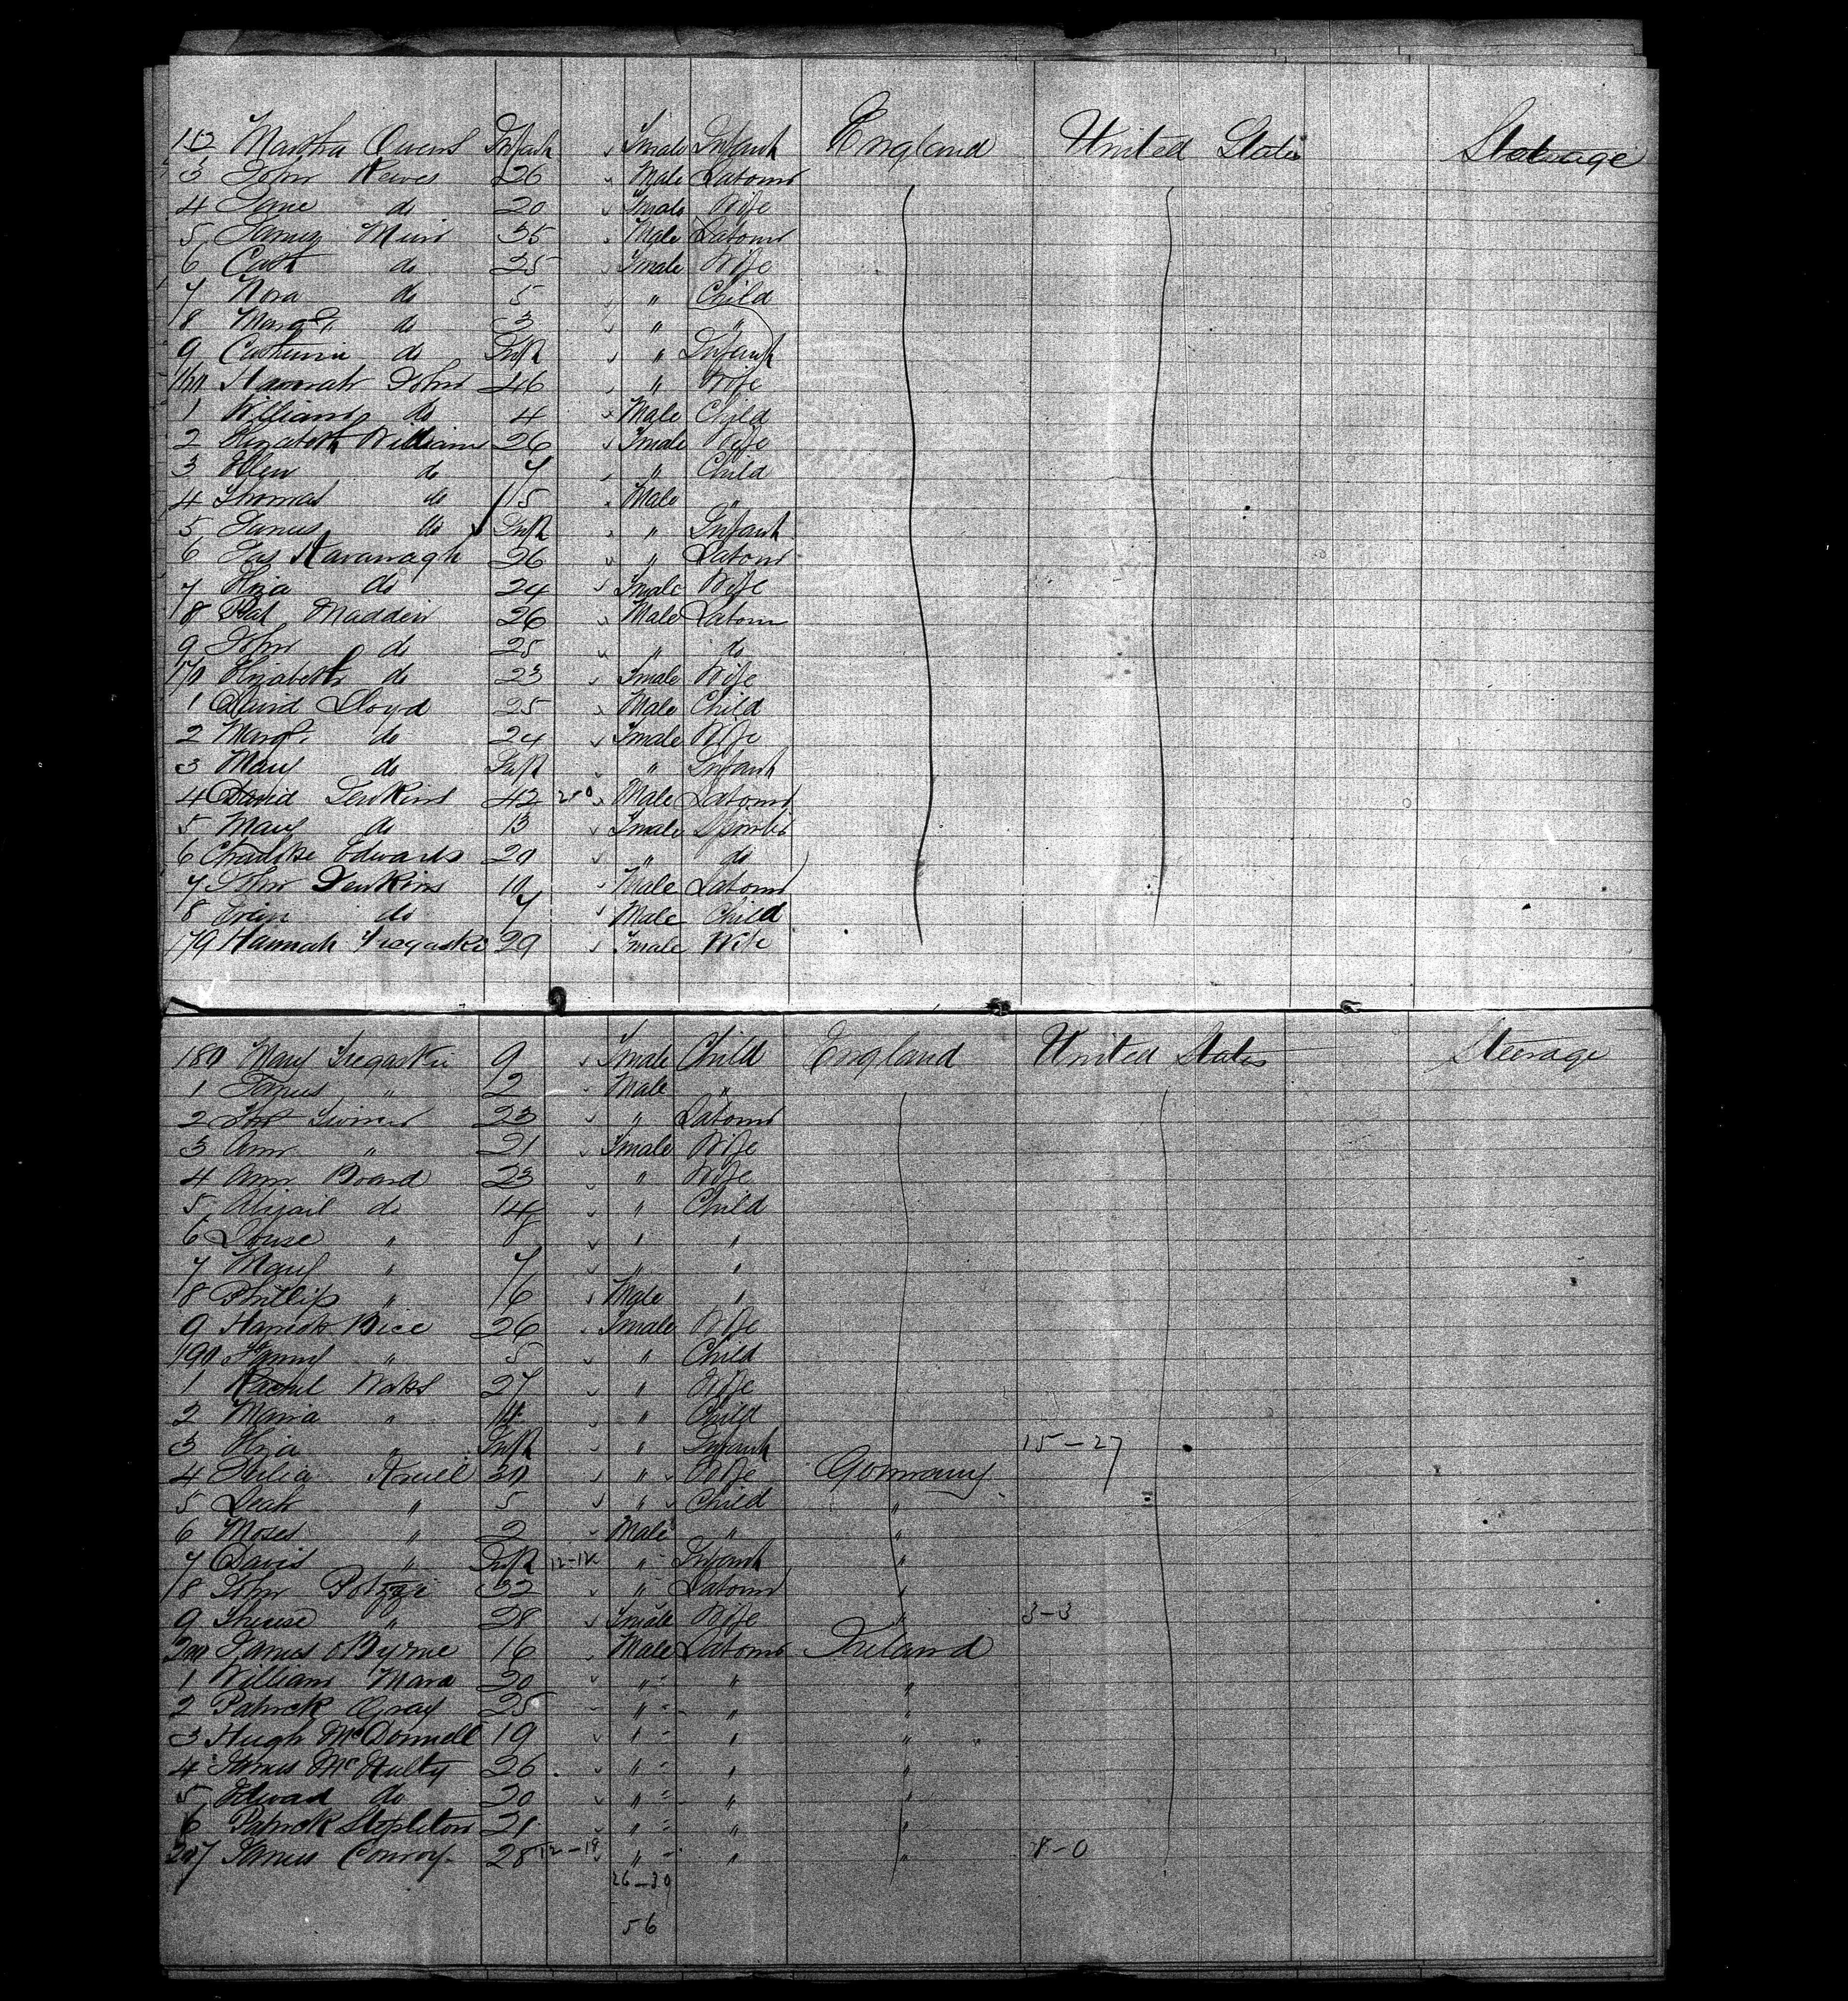 152 Martha Owens Infant Female Infant England United States Steerage
3 John Reeves 26 Male Labourer
4 Jane do 20 Female Wife
5 James Muir 35 Male Labourer
6 Cath do 25 Female Wife
7 Nora do 5 " Child
8 Margt. do 3 " "
9 Catherine do Inft " Infant
160 Hannah John 46 " Wife
1 William do 4 Male Child
2 Elizabeth Williams 26 Female Wife
3 Ellen do 7 " Child
4 Thomas do 5 Male "
5 James do Inft " Infant
6 Jas Kavanagh 26 " Labour
7 Eliza do 24 Female Wife
8 Pat Madden 26 Male Labour
9 John do 25 " do
170 Elizabeth do 23 Female Wife
1 David Lloyd 25 Male Child
2 Margt. do 24 Female Wife
3 Mary do Inft " Infant
4 David Jenkins 42 Male Labourer
5 Mary do 13 Female
6 Edwards 20 " do
7 John Jenkins 10 Male Labourer
8 Evan do 7 Male Child
179 Hannah Tregaskis 29 Female Wife
180 Mary Tregaskis 9 Female Child England United States Steerage
1 James " 2 Male "
2 23 " Labourer
3 Ann " 21 Female Wife
4 Ann Board 23 " Wife
5 Abigail do 14 " Child
6 Louise " 8 " "
7 Mary " 7 " "
8 Phillip " 6 Male "
9 Harriet Bice 26 Female Wife
190 Fanny " 5 " Child
1 Rachel 27 " Wife
2 Maria " 4 " Child
3 Eliza " Inft " Infant 15-27
4 30 " Wife Germany
5 Leah " 5 " Child "
6 Moses " 2 Male " "
7 Davis " Inft 12-12 " Infant "
8 John Potzzi 32 " Labourer "
9 Therese " 28 Female Wife " 3-3
200 James OByrne 16 Male Labourer Ireland
1 William Mara 20 " " "
2 Patrick Gray 25 " " "
3 Hugh McDonnell 19 " " "
4 James McNulty 26 " " "
5 Edward do 20 " " "
6 Patrick Stapleton 21 " " "
207 James Conroy 28 12-19 " " " 8-0
26-30
56